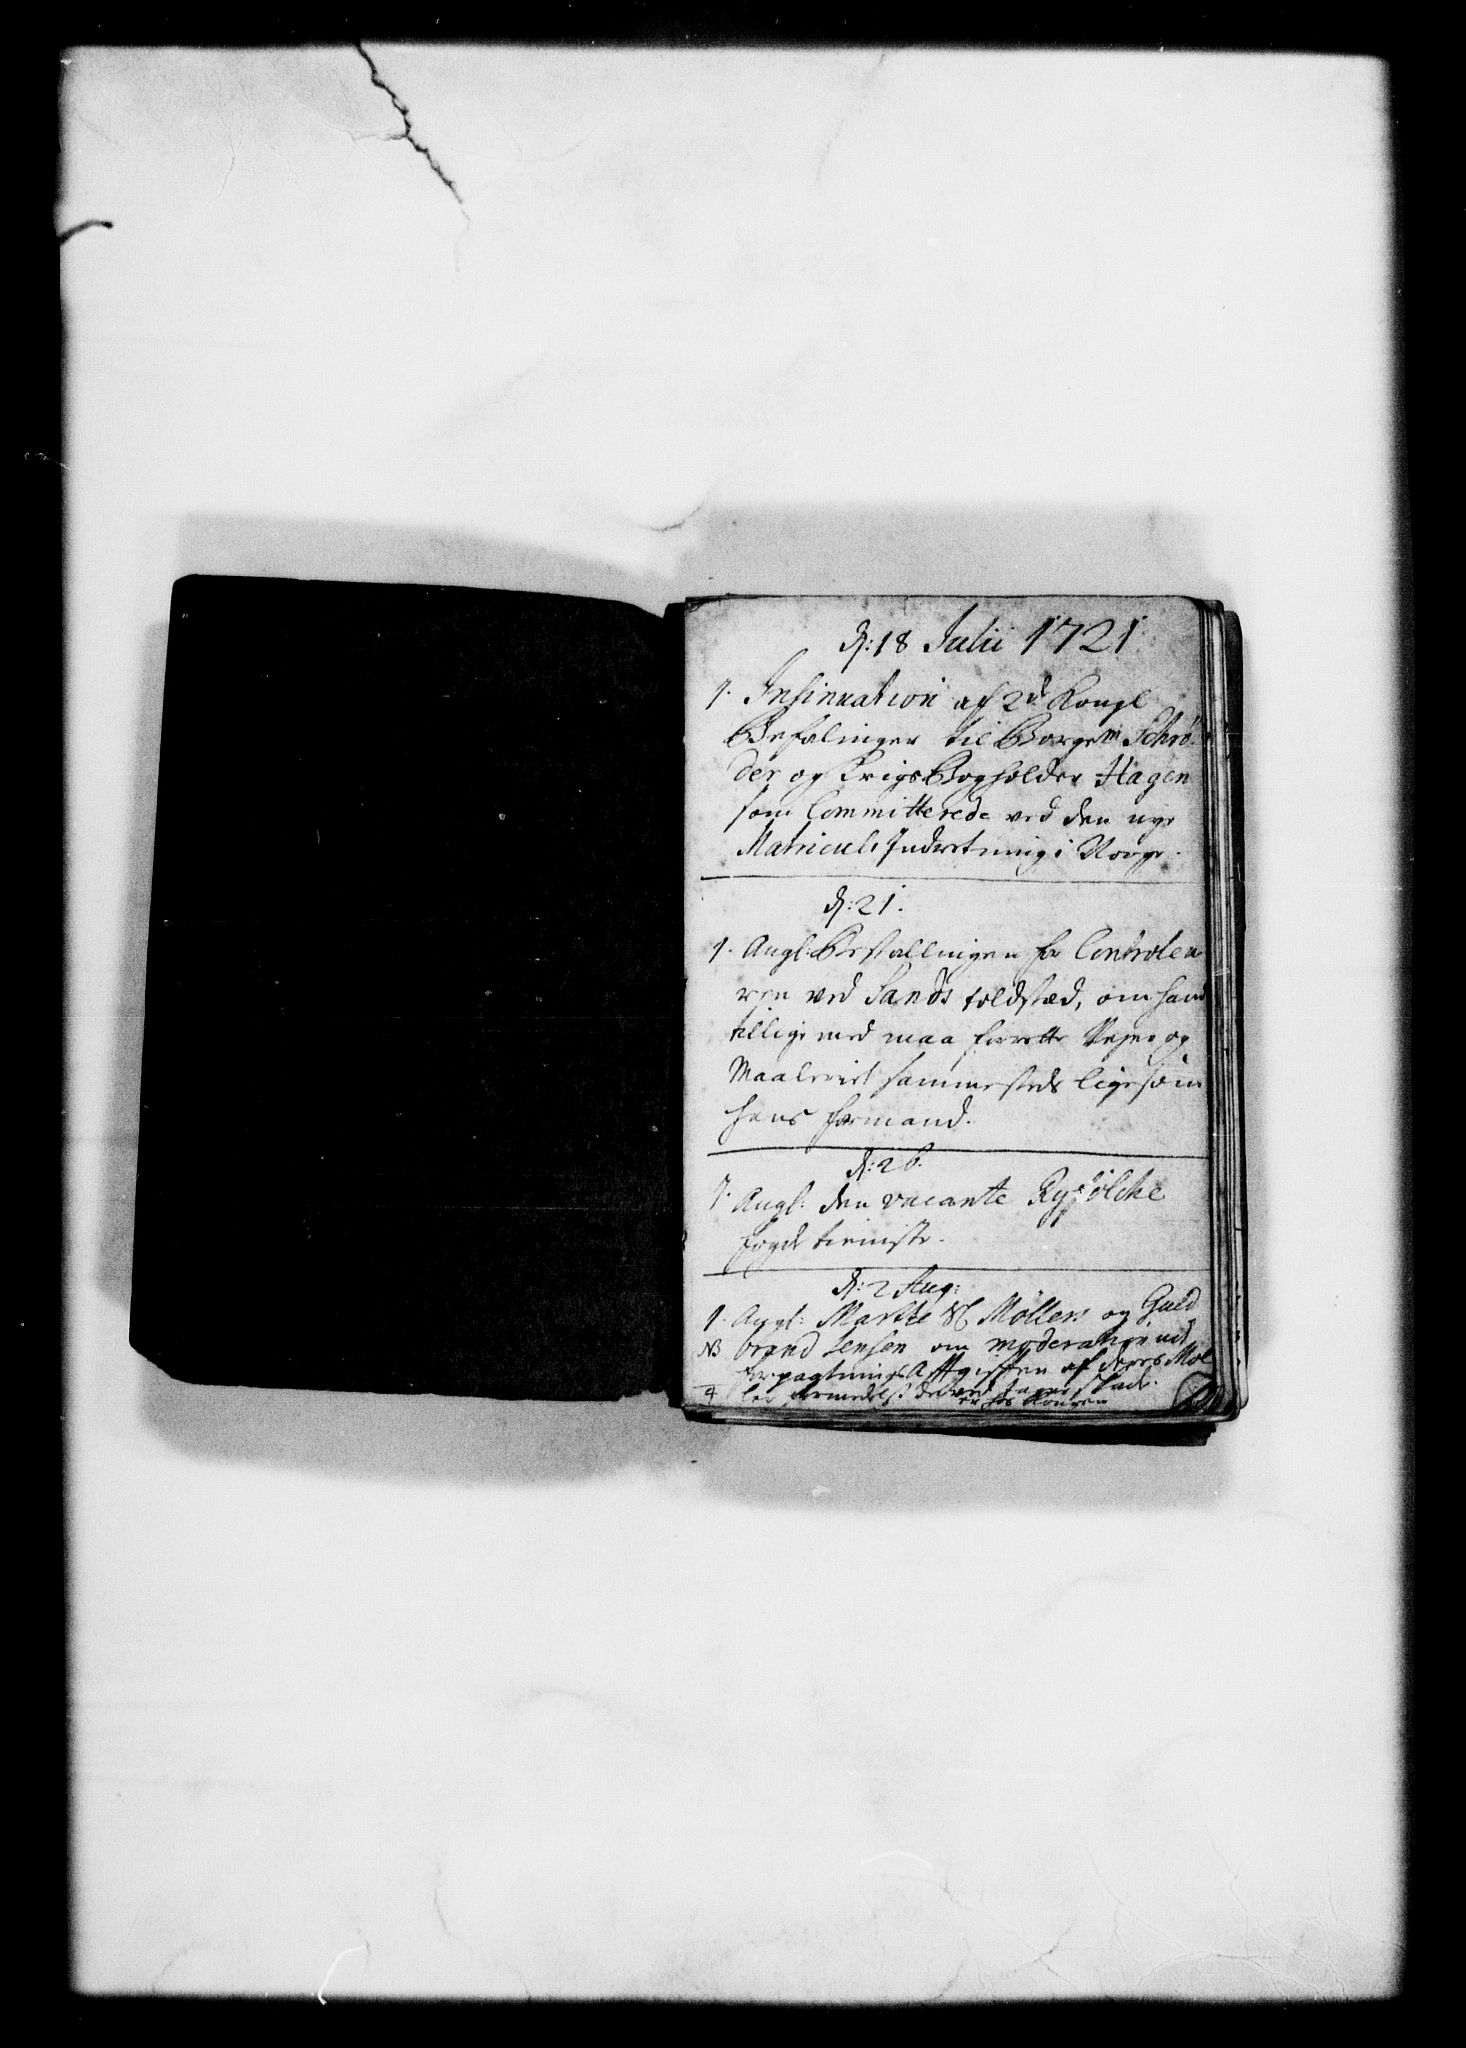 d: 18 Julii 1721
1. Insinuation af 2de Kongl
Befalinger til Borgem Schrø
der og Krigs Bogholder Hagen
som Committerede ved den nye
Matriculs Indretning i Norge.
d: 21.
1. Angl: Bestallingen for Controleu
ren ved Sands toldsted, om hand
tillige med maa forrette Vejer og
Maaleriet sammesteds ligesom
hans formand.
d: 26.
1. Angl: den vacante Ryfølcke
fogde tieniste.
d: 2 Aug:
1. Angl: Marthe Møllers og Guld
NB brand Jensen om moderation ud
forpagtnings Afgiften af deres Møl
4 ler formedelst skade.
er hos Kongen